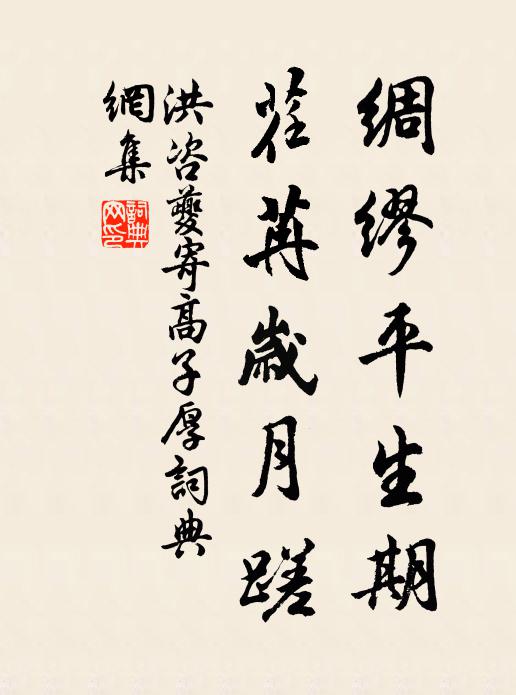 綢繆平生期
荏苒歲月蹉
洪咨夔寄高子厚詞典
網集
詞典
網印